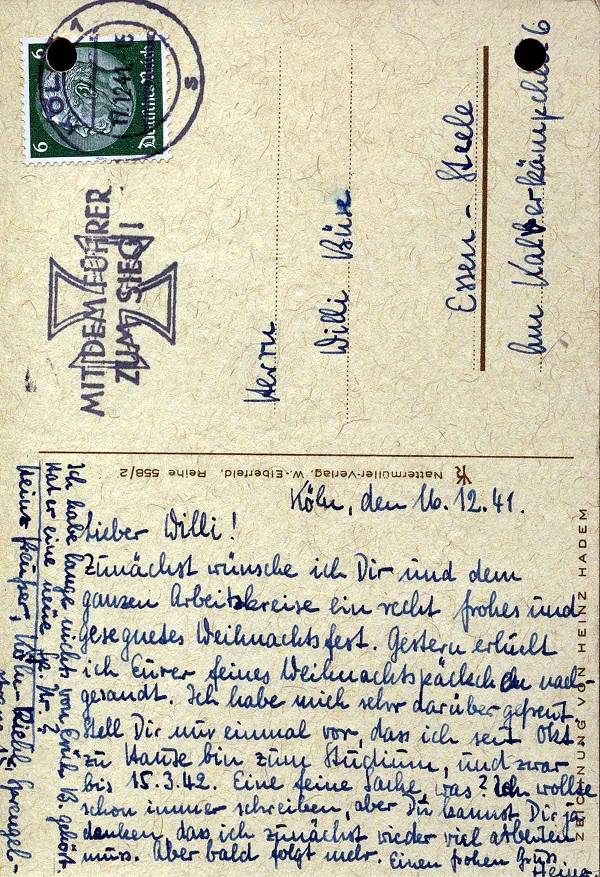 6 6
Deutsches Reich
KÖLN 1
17.12.41
s
MIT DEM FÜHRER
ZUM SIEG!
Herrn
Willi Büse
Essen - Steele
Am Kalverkämpchen 6
Nattermüller-Verlag, W.-Elberfeld, Reihe 558/2
ZEICHNUNG VON HEINZ HADEM
Köln, den 16.12.41.
Lieber Willi!
Zunächst wünsche ich Dir und dem
ganzen Arbeitskreise ein recht frohes und
gesegnetes Weihnachtsfest. Gestern erhielt
ich Eurer feines Weihnachtspäckchen nach-
gesandt. Ich habe mich sehr darüber gefreut.
Stell Dir nur einmal vor, dass ich seit Okt.
zu Hause bin zum Studium, und zwar
bis 15.3.42. Eine feine Sache, was? Ich wollte
schon immer schreiben, aber Du kannst Dir ja
denken, dass ich zunächst wieder viel arbeiten
muss. Aber bald folgt mehr. Einen frohen Gruss
Heinz.
Ich habe lange nichts von Erich B. gehört.
Hat er eine neue Nr?
Heinz Köln Riehl, Sprengel-